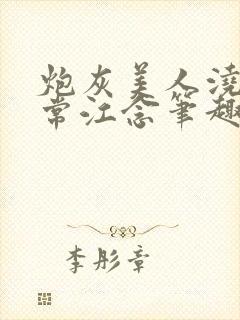 炮灰美人浇
常江念笔趣
李彤章